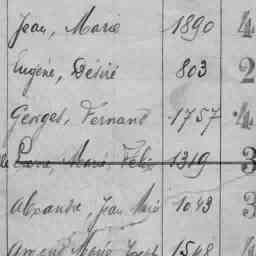 Jean, Marie 1890 4
Eugène, Désiré 803 2
Georges, Fernand 1757 4
Marie, Félix 1319 3
Alexandre, Jean Marie 1043 3
Armand Marie Joseph 1548 4